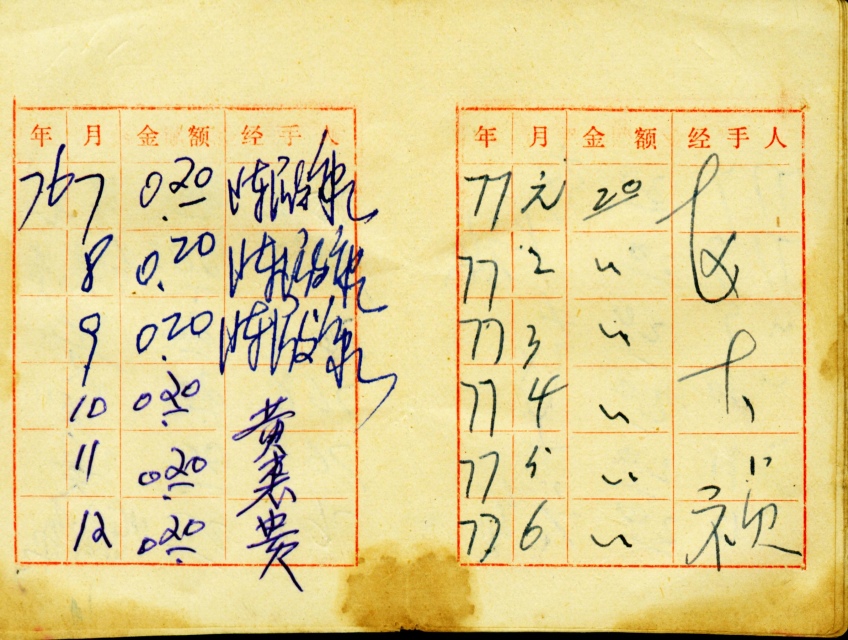 年 月 金 额 经 手 人
76 7 0.20
8 0.20
9 0.20
10 0.20 黄
11 0.20
12 0.20 贵
年 月 金 额 经 手 人
77 元 20
77 2 〃
77 3 〃
77 4 〃
77 5 〃
77 6 〃